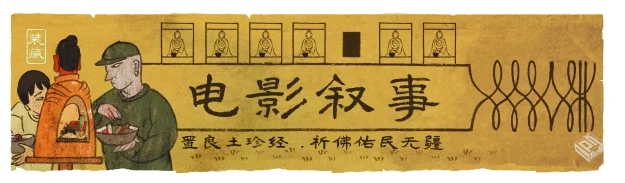 装藏
电影叙事
置良土珍经.祈佛佑民无疆